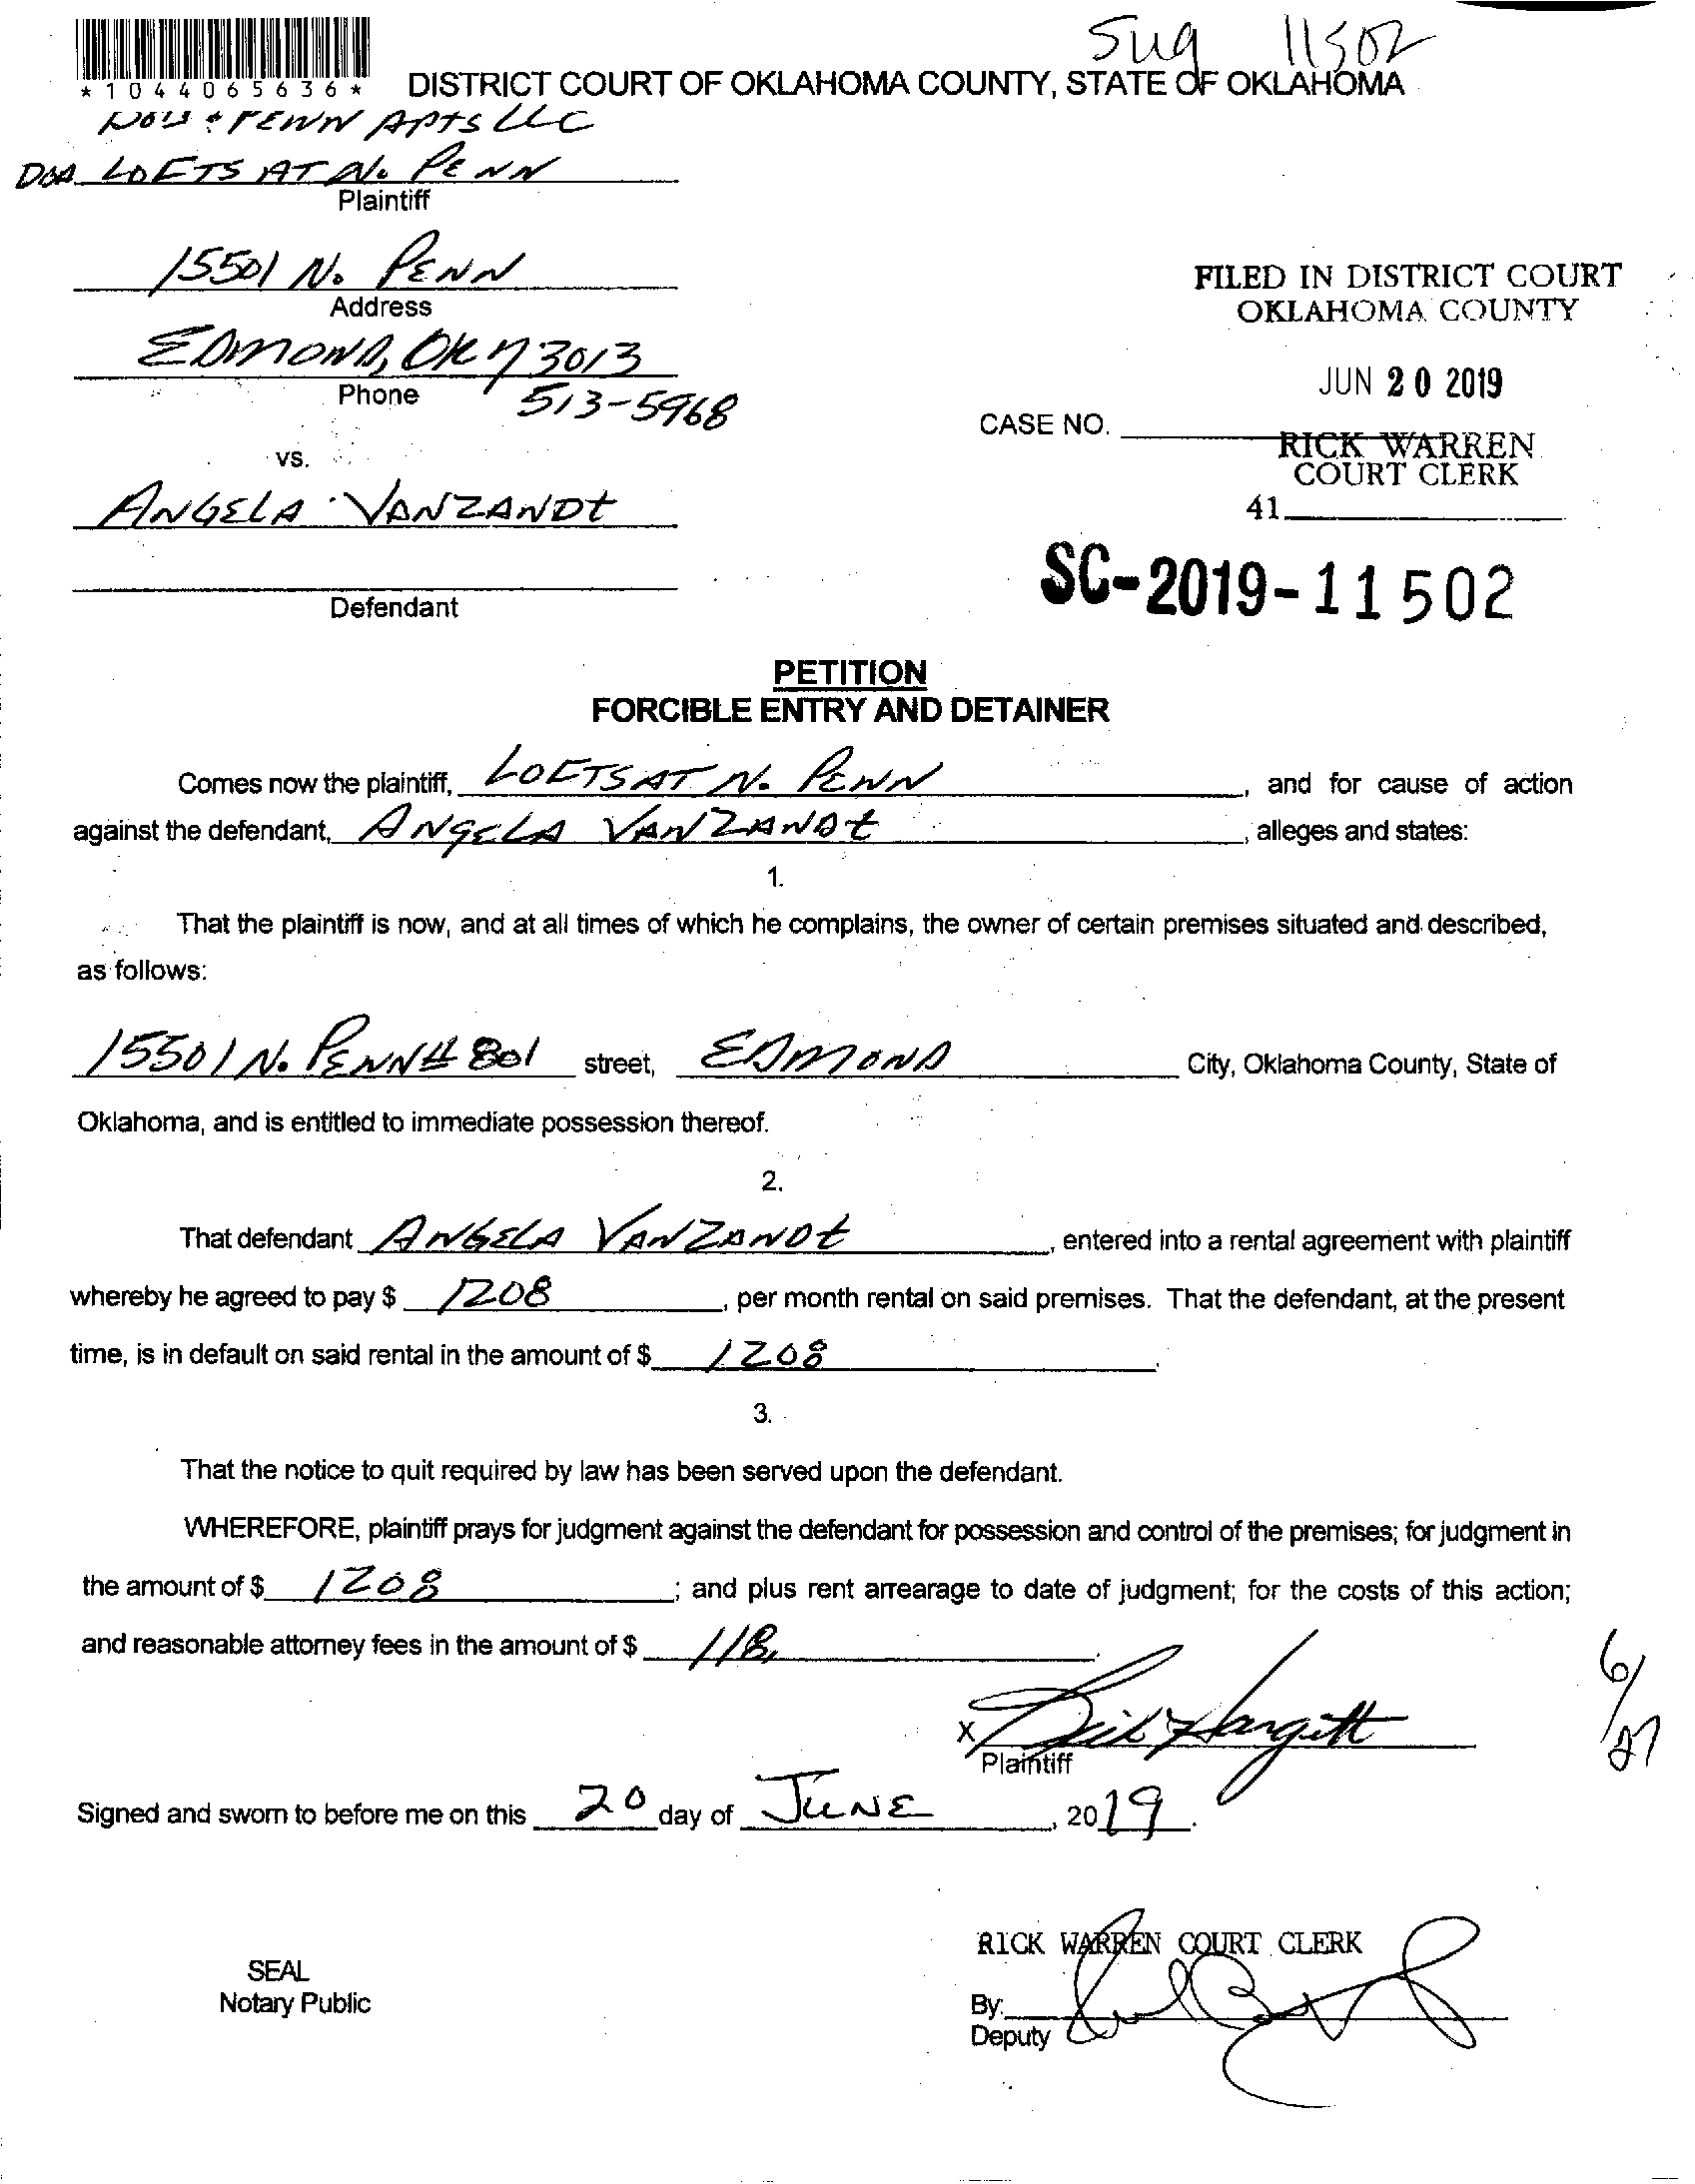 Sug 11502
*1044065636*
DISTRICT COURT OF OKLAHOMA COUNTY, STATE OF OKLAHOMA
& PENN APTS LLC
DBA LOFTS AT N. PENN
Plaintiff
15501 N. PENN
Address
EDMOND, OK 73013
Phone 513-5968
FILED IN DISTRICT COURT
OKLAHOMA COUNTY
JUN 20 2019
CASE NO.
RICK WARREN
COURT CLERK
41
vs.
ANGELA VANZANDT
Defendant
SC-2019-11502
PETITION
FORCIBLE ENTRY AND DETAINER
Comes now the plaintiff, LOFTS AT N. PENN, and for cause of action
against the defendant, ANGELA VANZANDT, alleges and states:
1.
That the plaintiff is now, and at all times of which he complains, the owner of certain premises situated and described,
as follows:
15501 N. PENN # 801 street, EDMOND City, Oklahoma County, State of
Oklahoma, and is entitled to immediate possession thereof.
2.
That defendant ANGELA VANZANDT, entered into a rental agreement with plaintiff
whereby he agreed to pay $ 1208, per month rental on said premises. That the defendant, at the present
time, is in default on said rental in the amount of $ 1208.
3.
That the notice to quit required by law has been served upon the defendant.
WHEREFORE, plaintiff prays for judgment against the defendant for possession and control of the premises; for judgment in
the amount of $ 1208; and plus rent arrearage to date of judgment; for the costs of this action;
and reasonable attorney fees in the amount of $ 118,.
6/27
X Hargett
Plaintiff
Signed and sworn to before me on this 20 day of JUNE, 2019.
RICK WARREN COURT CLERK
SEAL
Notary Public
By:
Deputy